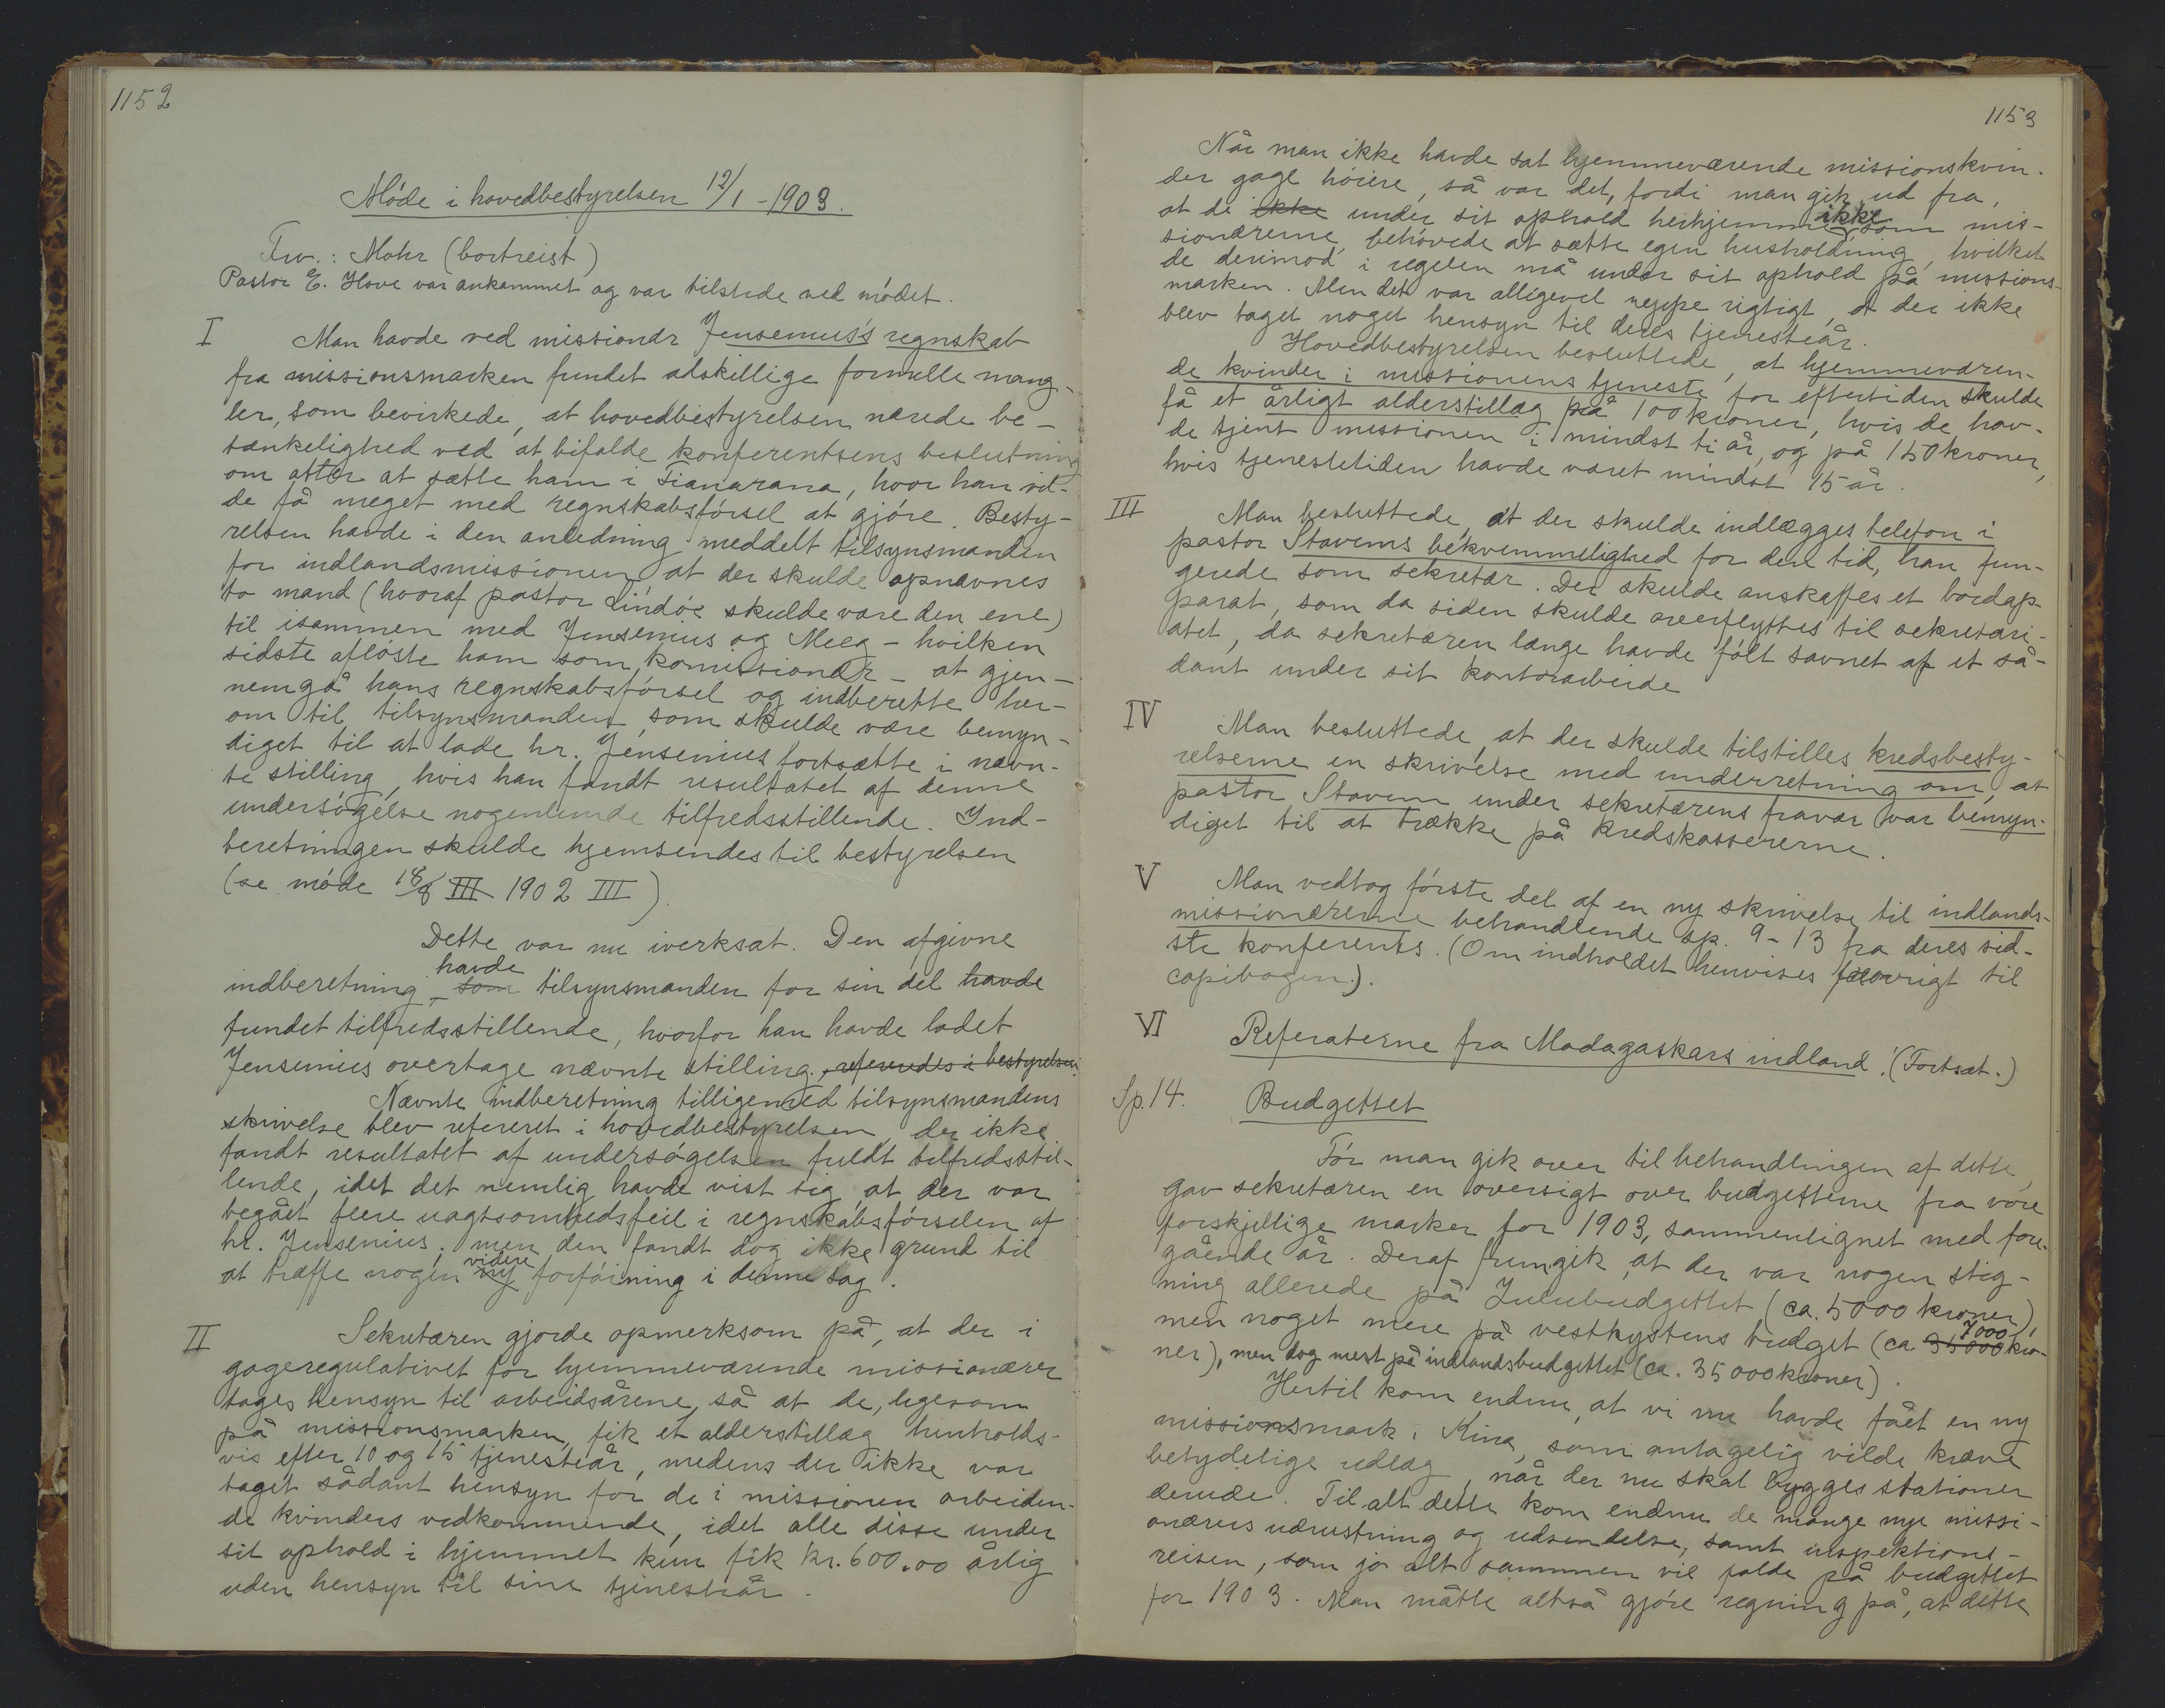 1152
Møde i hovedbestyrelsen 12/1 - 1903.
Frv.: Mohr (bortreist)
Pastor E. Hove var ankommet og var tilstede ved mødet.
I Man havde ved missionær Jensenius's regnskab
fra missionsmarken fundet adskillige formelle mang-
ler, som bevirkede, at hovedbestyrelsen nærede be-
tænkelighed ved at bifalde konferentsens beslutning
om atter at sætte ham i Fianarana, hvor han vil-
de få meget med regnskabsførsel at gjøre. Besty-
relsen havde i den anledning meddelt tilsynsmanden
for indlandsmissionen at der skulde opnævnes
to mænd (hvoraf pastor Lindøe skulde være den ene)
til isammen med Jensenius og Meeg - hvilken
sidste afløste ham som komissionær - at gjen-
nemgå hans regnskabsførsel og indberette her-
om til tilsynsmanden, som skulde være bemyn-
diget til at lade hr. Jensenius fortsætte i nævn-
te stilling, hvis han fandt resultatet af denne
undersøgelse nogenlunde tilfredsstillende. Ind-
beretningen skulde hjemsendes til bestyrelsen
(se møde 18/8 III 1902 III).
Dette var nu iverksat. Den afgivne
indberetning, som havde tilsynsmanden for sin del havde
fundet tilfredsstillende, hvorfor han havde ladet
Jensenius overtage nævnte stilling., refereredes i bestyrelsen
Nævnte indberetning tilligemed tilsynsmandens
skrivelse blev refereret i hovedbestyrelsen, der ikke
fandt resultatet af undersøgelsen fuldt tilfredsstil-
lende, idet det nemlig havde vist sig, at der var
begået flere uagtsomhedsfeil i regnskabsførselen af
hr. Jensenius; men den fandt dog ikke grund til
at træffe nogen ny videre forføining i denne sag.
II Sekretæren gjorde opmerksom på, at der i
gageregulativet for hjemmeværende missionærer
tages hensyn til arbeidsårene, så at de, ligesom
på missionsmarken, fik et alderstillæg henholds-
vis efter 10 og 15 tjenesteår, medens der ikke var
taget sådant hensyn for de i missionen arbeiden-
de kvinders vedkommende, idet alle disse under
sit ophold i hjemmet kun fik kr. 600.00 årlig
uden hensyn til sine tjenesteår.
1153
Når man ikke havde sat hjemmeværende missionskvin-
der gage høiere, så var det, fordi man gik ud fra,
at de ikke under sit ophold herhjemme ikke som mis-
sionærerne, behøvede at sætte egen husholdning, hvilket
de derimod i regelen må under sit ophold på missions-
marken. Men det var alligevel neppe rigtigt, at der ikke
blev taget noget hensyn til deres tjenesteår.
Hovedbestyrelsen besluttede, at hjemmeværen-
de kvinder i missionens tjeneste for eftertiden skulde
få et årligt alderstillæg på 100 kroner, hvis de hav-
de tjent missionen i mindst ti år, og på 150 kroner,
hvis tjenestetiden havde været mindst 15 år.
III Man besluttede, at der skulde indlægges telefon i
pastor Stavems bekvemmelighed for den tid, han fun-
gerede som sekretær. Der skulde anskaffes et bordap-
parat, som da siden skulde overflyttes til sekretari-
atet, da sekretæren længe havde følt savnet af et så-
dant under sit kontorarbeide
IV Man besluttede, at der skulde tilstilles kredsbesty-
relserne en skrivelse med underretning om, at
pastor Stavem under sekretærens fravær var bemyn-
diget til at trække på kredskassererne.
V Man vedtog første del af en ny skrivelse til indlands-
missionærerne behandlende sp. 9-13 fra deres sid-
ste konferents. (Om indholdet henvises forøvrigt til
copibogen.).
VI Referaterne fra Madagaskars indland. (Fortsat.)
Sp. 14. Budgettet
Før man gik over til behandlingen af dette,
gav sekretæren en oversigt over budgetterne fra vore
forskjellige marker for 1903, sammenlignet med fore-
gående år. Deraf fremgik, at der var nogen stig-
ning allerede på Zulubudgettet (ca. 5000 kroner),
men noget mere på vestkystens budget (ca 35000 7000 kro-
ner), men dog mest på indlandsbudgettet (ca. 35000 kroner).
Hertil kom endnu, at vi nu havde fået en ny
missionsmark, Kina, som antagelig vilde kræve
betydelige udlæg, når der nu skal bygges stationer
derude. Til alt dette kom endnu de mange nye missi-
onærers udrustning og udsendelse, samt inspektions-
reisen, som jo alt sammen vil falde på budgettet
for 1903. Man måtte altså gjøre regning på, at dette